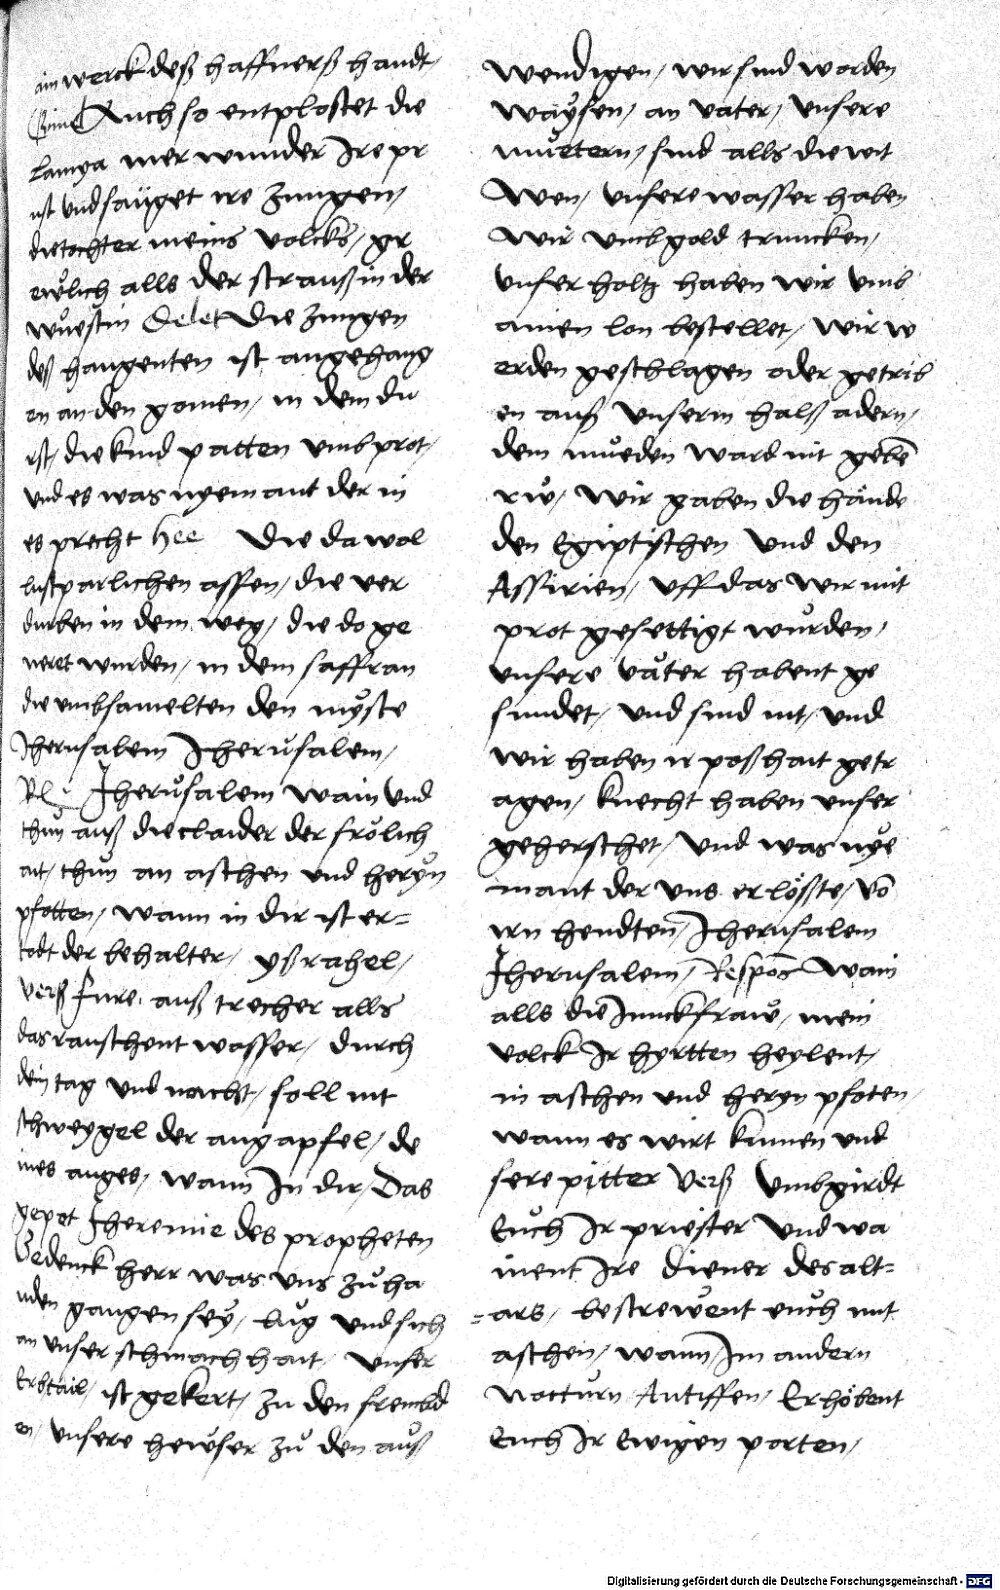 ain werck deß haffnerß handt,
Gimel Auch so entplostet die
Lamya mer wunder Ire pr
ust vnd sauget ire zungen,
die tochter meins volcks, gr
ewlich alls der strauß in der
wuestin Delet Die zungen
deß haugenten ist angehang
en an den gomen, in dem du
rst, die kind patten vmb prot,
vnd es was nyemant der in
es precht Hee Die da wol
lustparlichen assen, die ver
durben in dem weg, die do ge
neret wurden, in dem saffran
die vmbsamelten den myste
Jherusalem Jherusalem,
Jherusalem wain vnd
thun auß die claider der frölich
ait, thun an aschen vnd heryn
pfotten, wann in dir ist er=
todt der behalter, ysrahel,
Verß Fure auß trecher alls
das rauschent wasser, durch
dein tag vnd nacht, soll nit
schweygel der augapfel, de
ines auges, wann In dir, Das
gepet Jheremie des propheten
Gedenck herr was vns zu ha
nden gangen sey, lug vnd sich
an vnser schmachhait, vnser
Erbtail, ist gekert, zu den frembd
en, vnsere hewser zu den auß
wendigen, wir sind worden
waysen, an vater, vnsere
muetern, sind alls die wit
wen, vnsere wasser haben
wir vmb gold truncken,
vnser holtz haben wir vmb
ainen lon bestellet, wir w
erden geschlagen oder getrib
en auß vnserm halß adern,
dem mueden ward nit geben
rw, wir gaben die hände
den Egiptischen vnd den
Assirien, vff das wir mit
prot gesettigt wurden,
vnsere väter habent ge
sundet, vnd sind nit, vnd
wir haben ir poßhait getr
agen, knecht haben vnser
geherschet, vnd was nye
mant der vns erlößte, vo
irn hendten, Jherusalem
Jherusalem, Respons Wain
alls die Junckfraw, mein
volck Ir hyrtten heylent,
in aschen vnd heryn pfoten,
wann es wirt kumen vnd
sere pitter Verß Vmbgirdt
Euch Ir priester vnd wa
inent Ire diener des alt=
=ars, bestrewent euch mit
aschen, wann, Im andern
Notturn Antiffen, Erhöbent
Euch Ir Ewigen porten,
Digitalisierung gefördert durch die Deutsche Forschungsgemeinschaft - DFG